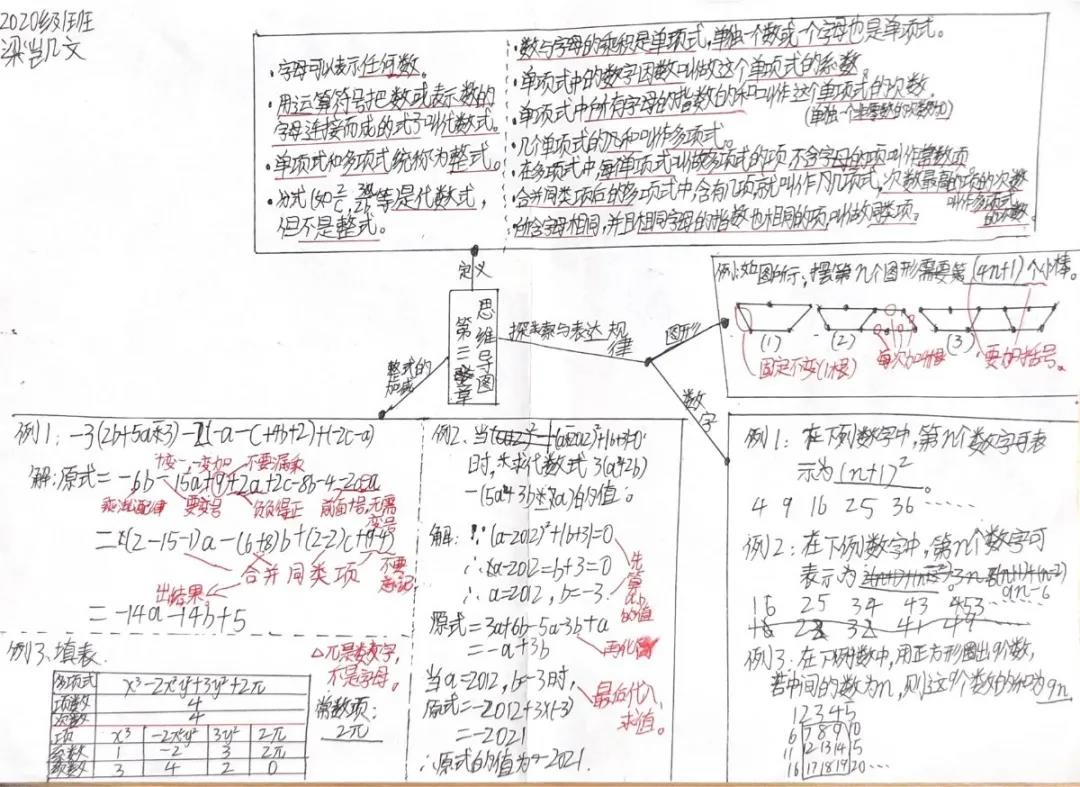 2020级1班
梁岂几文
·字母可以表示任何数。
·用运算符号把数或表示数的
字母连接而成的式子叫代数式。
·单项式和多项式统称为整式。
·分式(如
等)是代数式，
但不是整式。
·数与字母的乘积是单项式，单独一个数或一个字母也是单项式。
·单项式中的数字因数叫做这个单项式的系数
·单项式中所有字母的指数的和叫作这个单项式的次数.
·几个单项式的和叫作多项式。
·在多项式中，每个单项式叫做多项式的项，不含字母的项叫作常数项
·合并同类项后的多项式中，含有几项，就叫作几项式，次数最高的项的次数
叫作多项式
的次数。
·所含字母相同，并且相同字母的指数也相同的项，叫做同类项。
定义
思维导图
第三章
探索与表达规律
图形
数字
整式的
加减
例1:如图所示，摆第n个图形需要第(4n+1)个小棒。
(1) (2) (3)
固定不变(1根) 每次加4根 要加括号。
例1：-3(2b+5a-3)
+(-2c-a)
+变-，-变加 不要漏乘
解：原式=-6b-15a+9+2a+2c-8b-4-2c-a
乘法分配律 要变号 负负得正 前面+号，无需
变号
=(2-15-1)a-(6+8)b+(2-2)c+(9-4)
合并同类项 不要
忘记
出结果
=-14a-14b+5
例3、填表.
△π是数字，
不是字母。
多项式 x³-2x²y²+3y²+2π
项数 4
次数 4
项 x³ -2x²y² 3y² 2π
系数 1 -2 3 2π
次数 3 4 2 0
常数项：
2π
例2、当
(a-2012)²+|b+3|=0
时，求代数式 3(a+2b)
-(5a+3b
a)的值。
解：∵(a-2012)²+|b+3|=0
∴a-2012=b+3=0
∴a=2012，b=-3.
先算a,b的值
原式=3a+6b-5a-3b+a
=-a+3b
再化简
当a=2012，b=-3时，
原式=-2012+3×(-3)
=-2021
最后代入
求值。
∴原式的值为-2021.
例1：在下列数字中，第n个数字可表
示为(n+1)²。
4 9 16 25 36 ……
例2：在下列数字中，第n个数字可
表示为
9n-6
16 25 34 43 ……
例3：在下列数中，用正方形圈出9个数，
若中间的数为n，则这9个数的和为9n。
1 2 3 4 5
6 7 8 9 10
11 12 13 14 15
16 17 18 19 20 ……